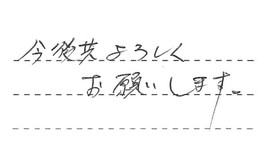 今後共よろしく
お願いします。